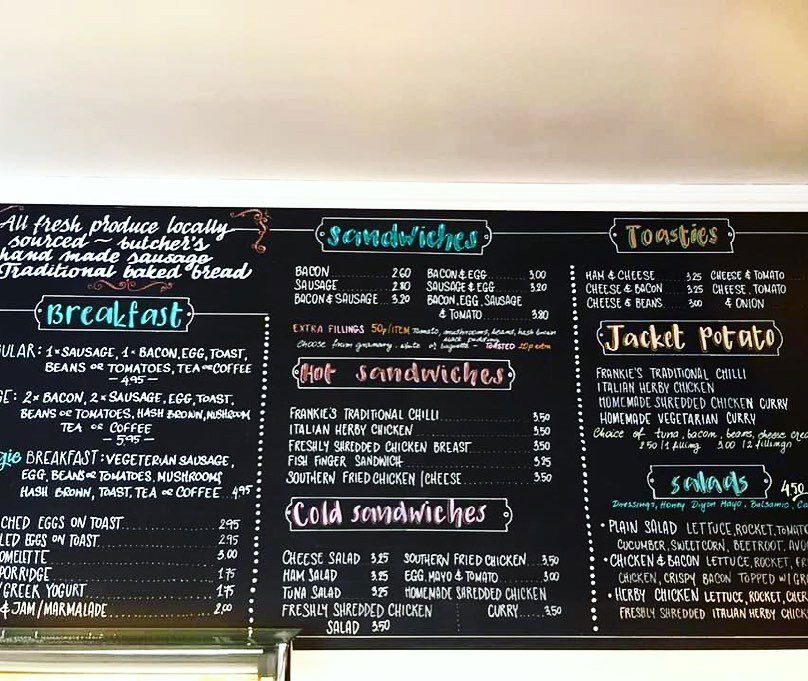 All fresh produce locally
sourced ~ butcher's
hand made sausage
Traditional baked bread
Breakfast
ULAR: 1x SAUSAGE, 1x BACON, EGG, TOAST,
BEANS OR TOMATOES, TEA OR COFFEE
— 4.95 —
GE: 2x BACON, 2x SAUSAGE, EGG, TOAST,
BEANS OR TOMATOES, HASH BROWN, MUSHROOM
TEA OR COFFEE
— 5.95 —
gie BREAKFAST: VEGETERIAN SAUSAGE,
EGG, BEANS OR TOMATOES, MUSHROOMS
HASH BROWN, TOAST, TEA OR COFFEE 4.95
CHED EGGS ON TOAST 2.95
LED EGGS ON TOAST 2.95
OMELETTE 3.00
PORRIDGE 1.75
/GREEK YOGURT 1.75
& JAM/MARMALADE 2.00
Sandwiches
BACON 2.60 BACON & EGG 3.00
SAUSAGE 2.80 SAUSAGE & EGG 3.20
BACON & SAUSAGE 3.20 BACON, EGG, SAUSAGE
& TOMATO 3.80
EXTRA FILLINGS 50p/ITEM Tomato, mushrooms, beans, hash brown
black pudding
Choose from granary, white or baguette - TOASTED 20p extra
Hot sandwiches
FRANKIE'S TRADITIONAL CHILLI 3.50
ITALIAN HERBY CHICKEN 3.50
FRESHLY SHREDDED CHICKEN BREAST 3.50
FISH FINGER SANDWICH 3.25
SOUTHERN FRIED CHICKEN / CHEESE 3.50
Cold sandwiches
CHEESE SALAD 3.25 SOUTHERN FRIED CHICKEN 3.50
HAM SALAD 3.25 EGG, MAYO & TOMATO 3.00
TUNA SALAD 3.25 HOMEMADE SHREDDED CHICKEN
FRESHLY SHREDDED CHICKEN CURRY 3.50
SALAD 3.50
Toasties
HAM & CHEESE 3.25 CHEESE & TOMATO
CHEESE & BACON 3.25 CHEESE, TOMATO
CHEESE & BEANS 3.00 & ONION
Jacket Potato
FRANKIE'S TRADITIONAL CHILLI
ITALIAN HERBY CHICKEN
HOMEMADE SHREDDED CHICKEN CURRY
HOMEMADE VEGETARIAN CURRY
Choice of tuna, bacon, beans, cheese
2.50 /1 filling 3.00 /2 fillings
salads 4.50
Dressings, Honey Dijon Mayo, Balsamic,
• PLAIN SALAD LETTUCE, ROCKET, TOMATO
CUCUMBER, SWEETCORN, BEETROOT, AVO
• CHICKEN & BACON LETTUCE, ROCKET, FR
CHICKEN, CRISPY BACON TOPPED W/ GR
• HERBY CHICKEN LETTUCE, ROCKET, CHER
FRESHLY SHREDDED ITALIAN HERBY CHIC